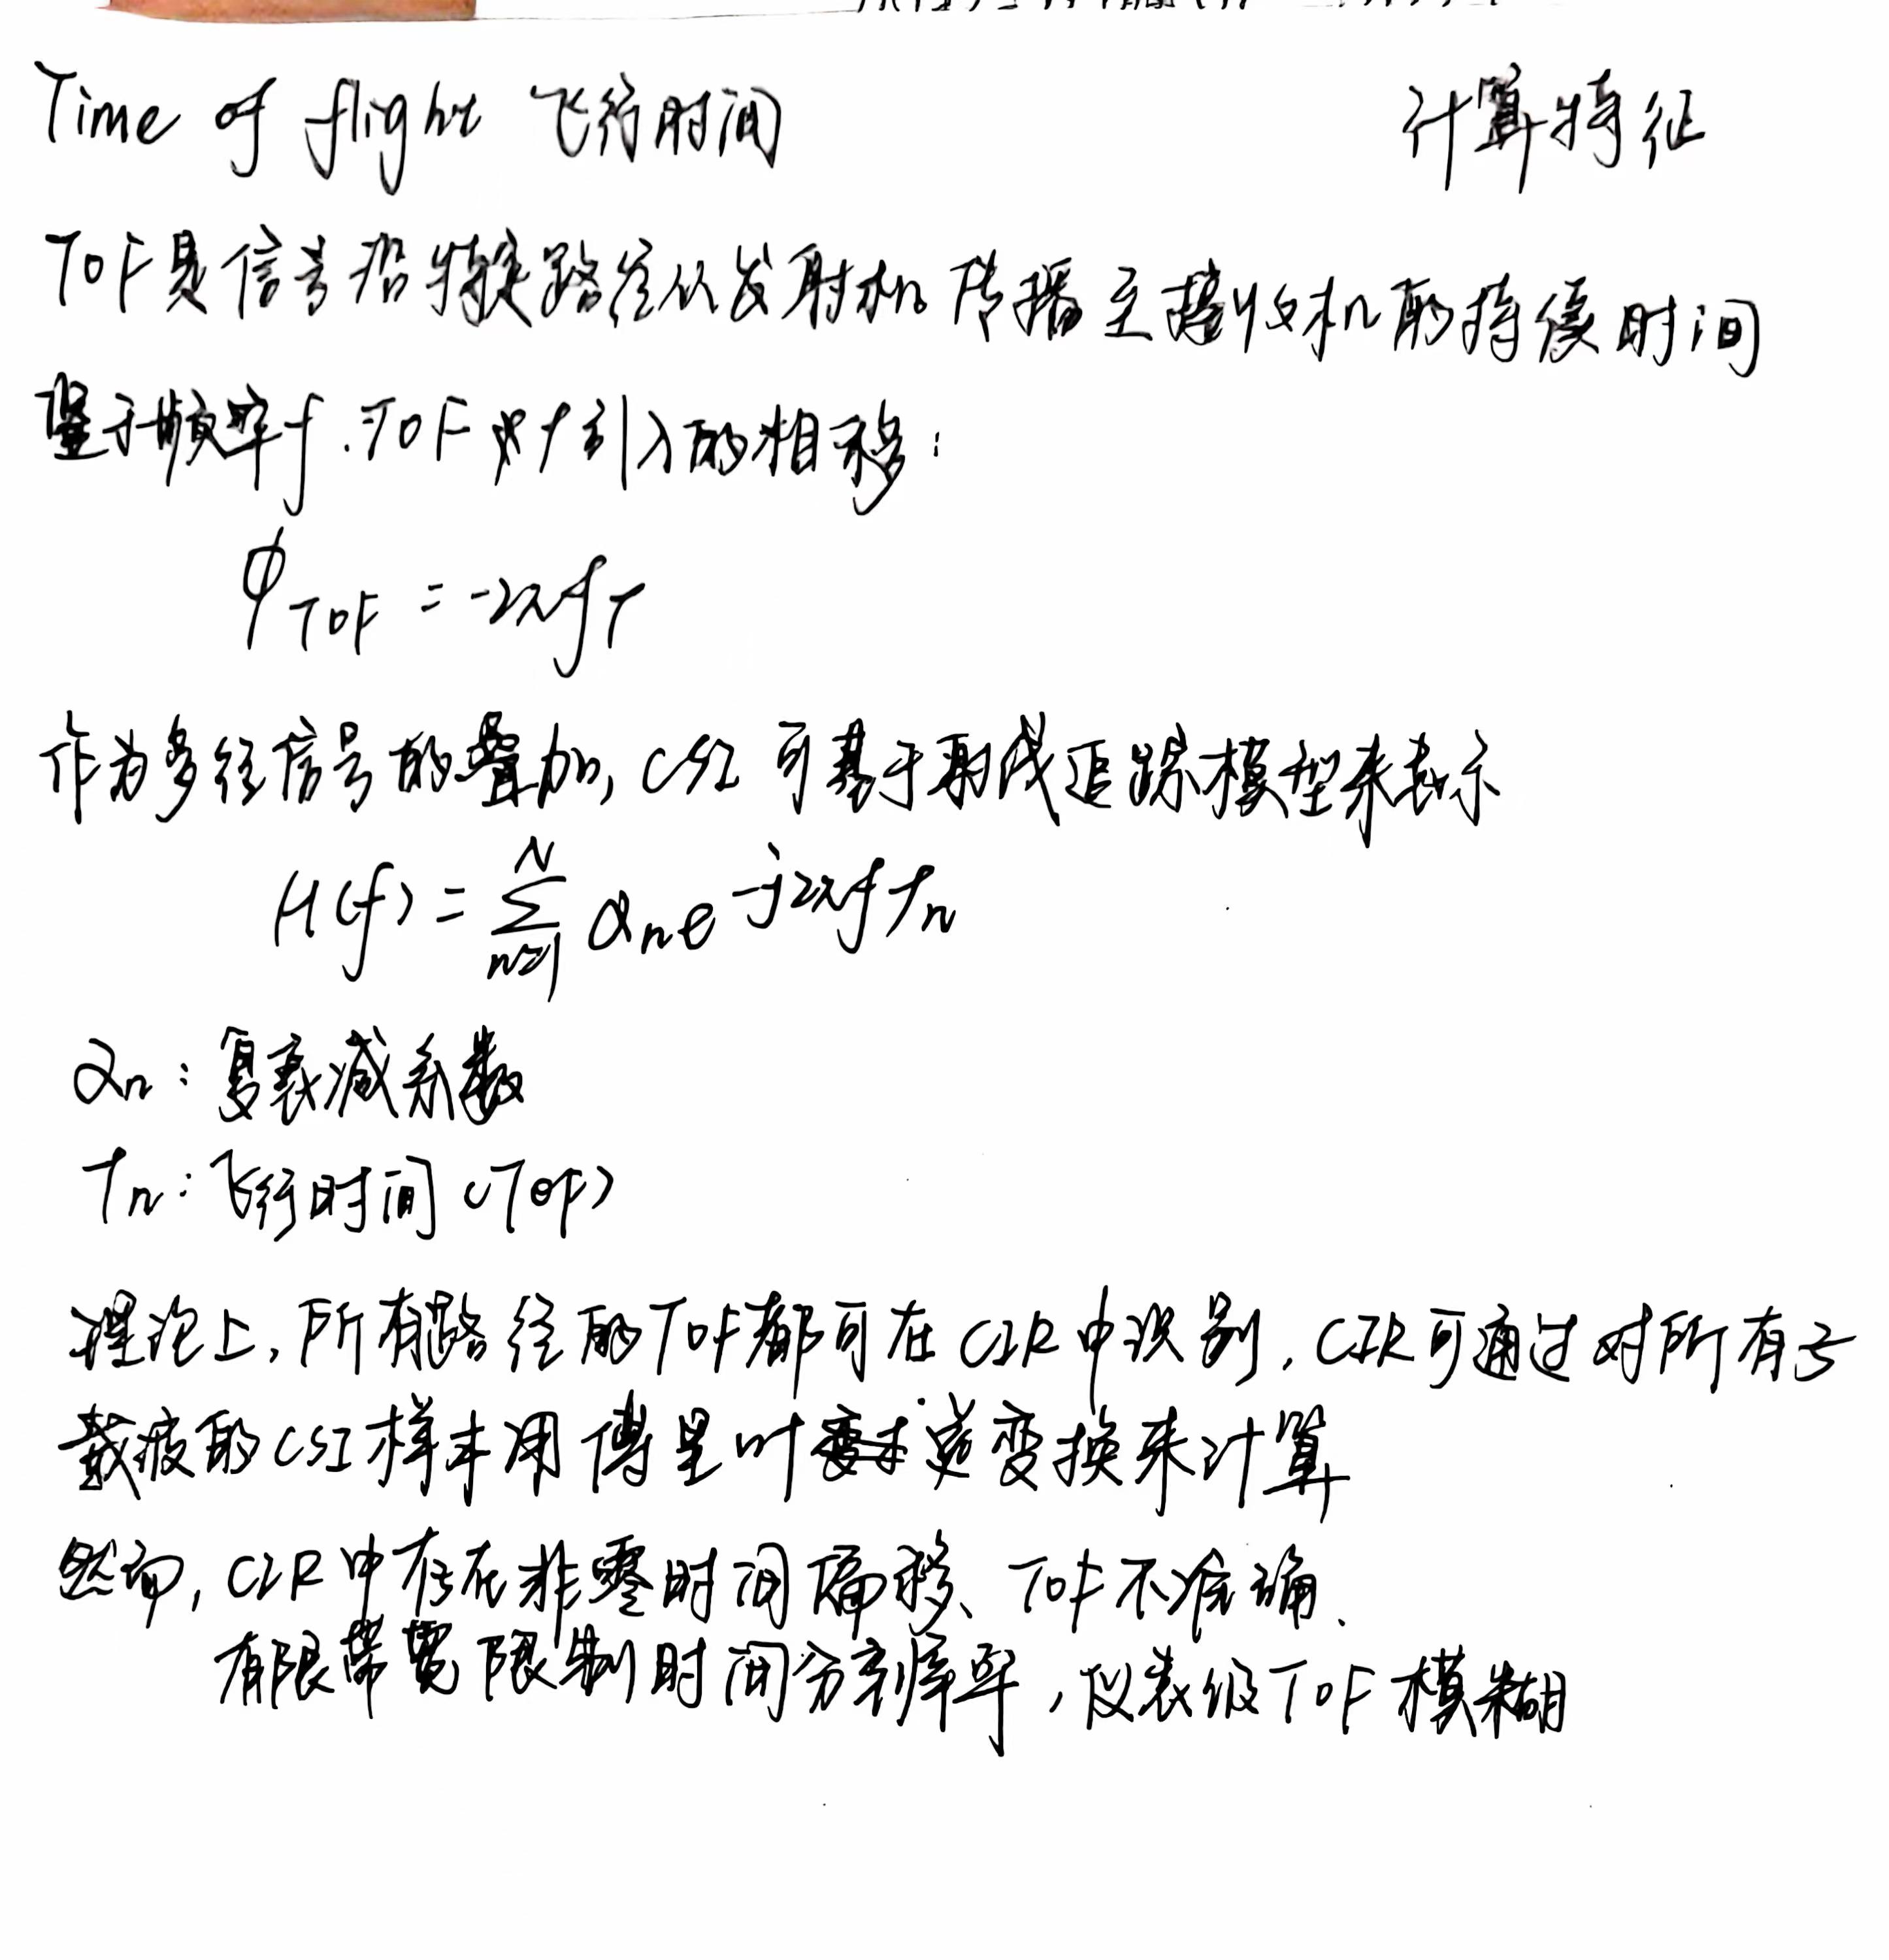 Time of flight 飞行时间 计算特征
TOF是信号沿特定路径从发射机传播至接收机的持续时间
鉴于频率f.TOF对f引入的相移：
φTOF = -2πfτ
作为多径信号的叠加, CSI 可基于射线追踪模型来表示
H(f) = Σ_{n=1}^{N} αn e^{-j2πfτn}
αn：复衰减系数
τn：飞行时间(TOF)
理论上,所有路径的TOF都可在CIR中识别. CIR可通过对所有子
载波的CSI样本用傅里叶逆变换来计算
然而, CIR中存在非零时间偏移、TOF不准确.
有限带宽限制时间分辨率，仪表级TOF模糊